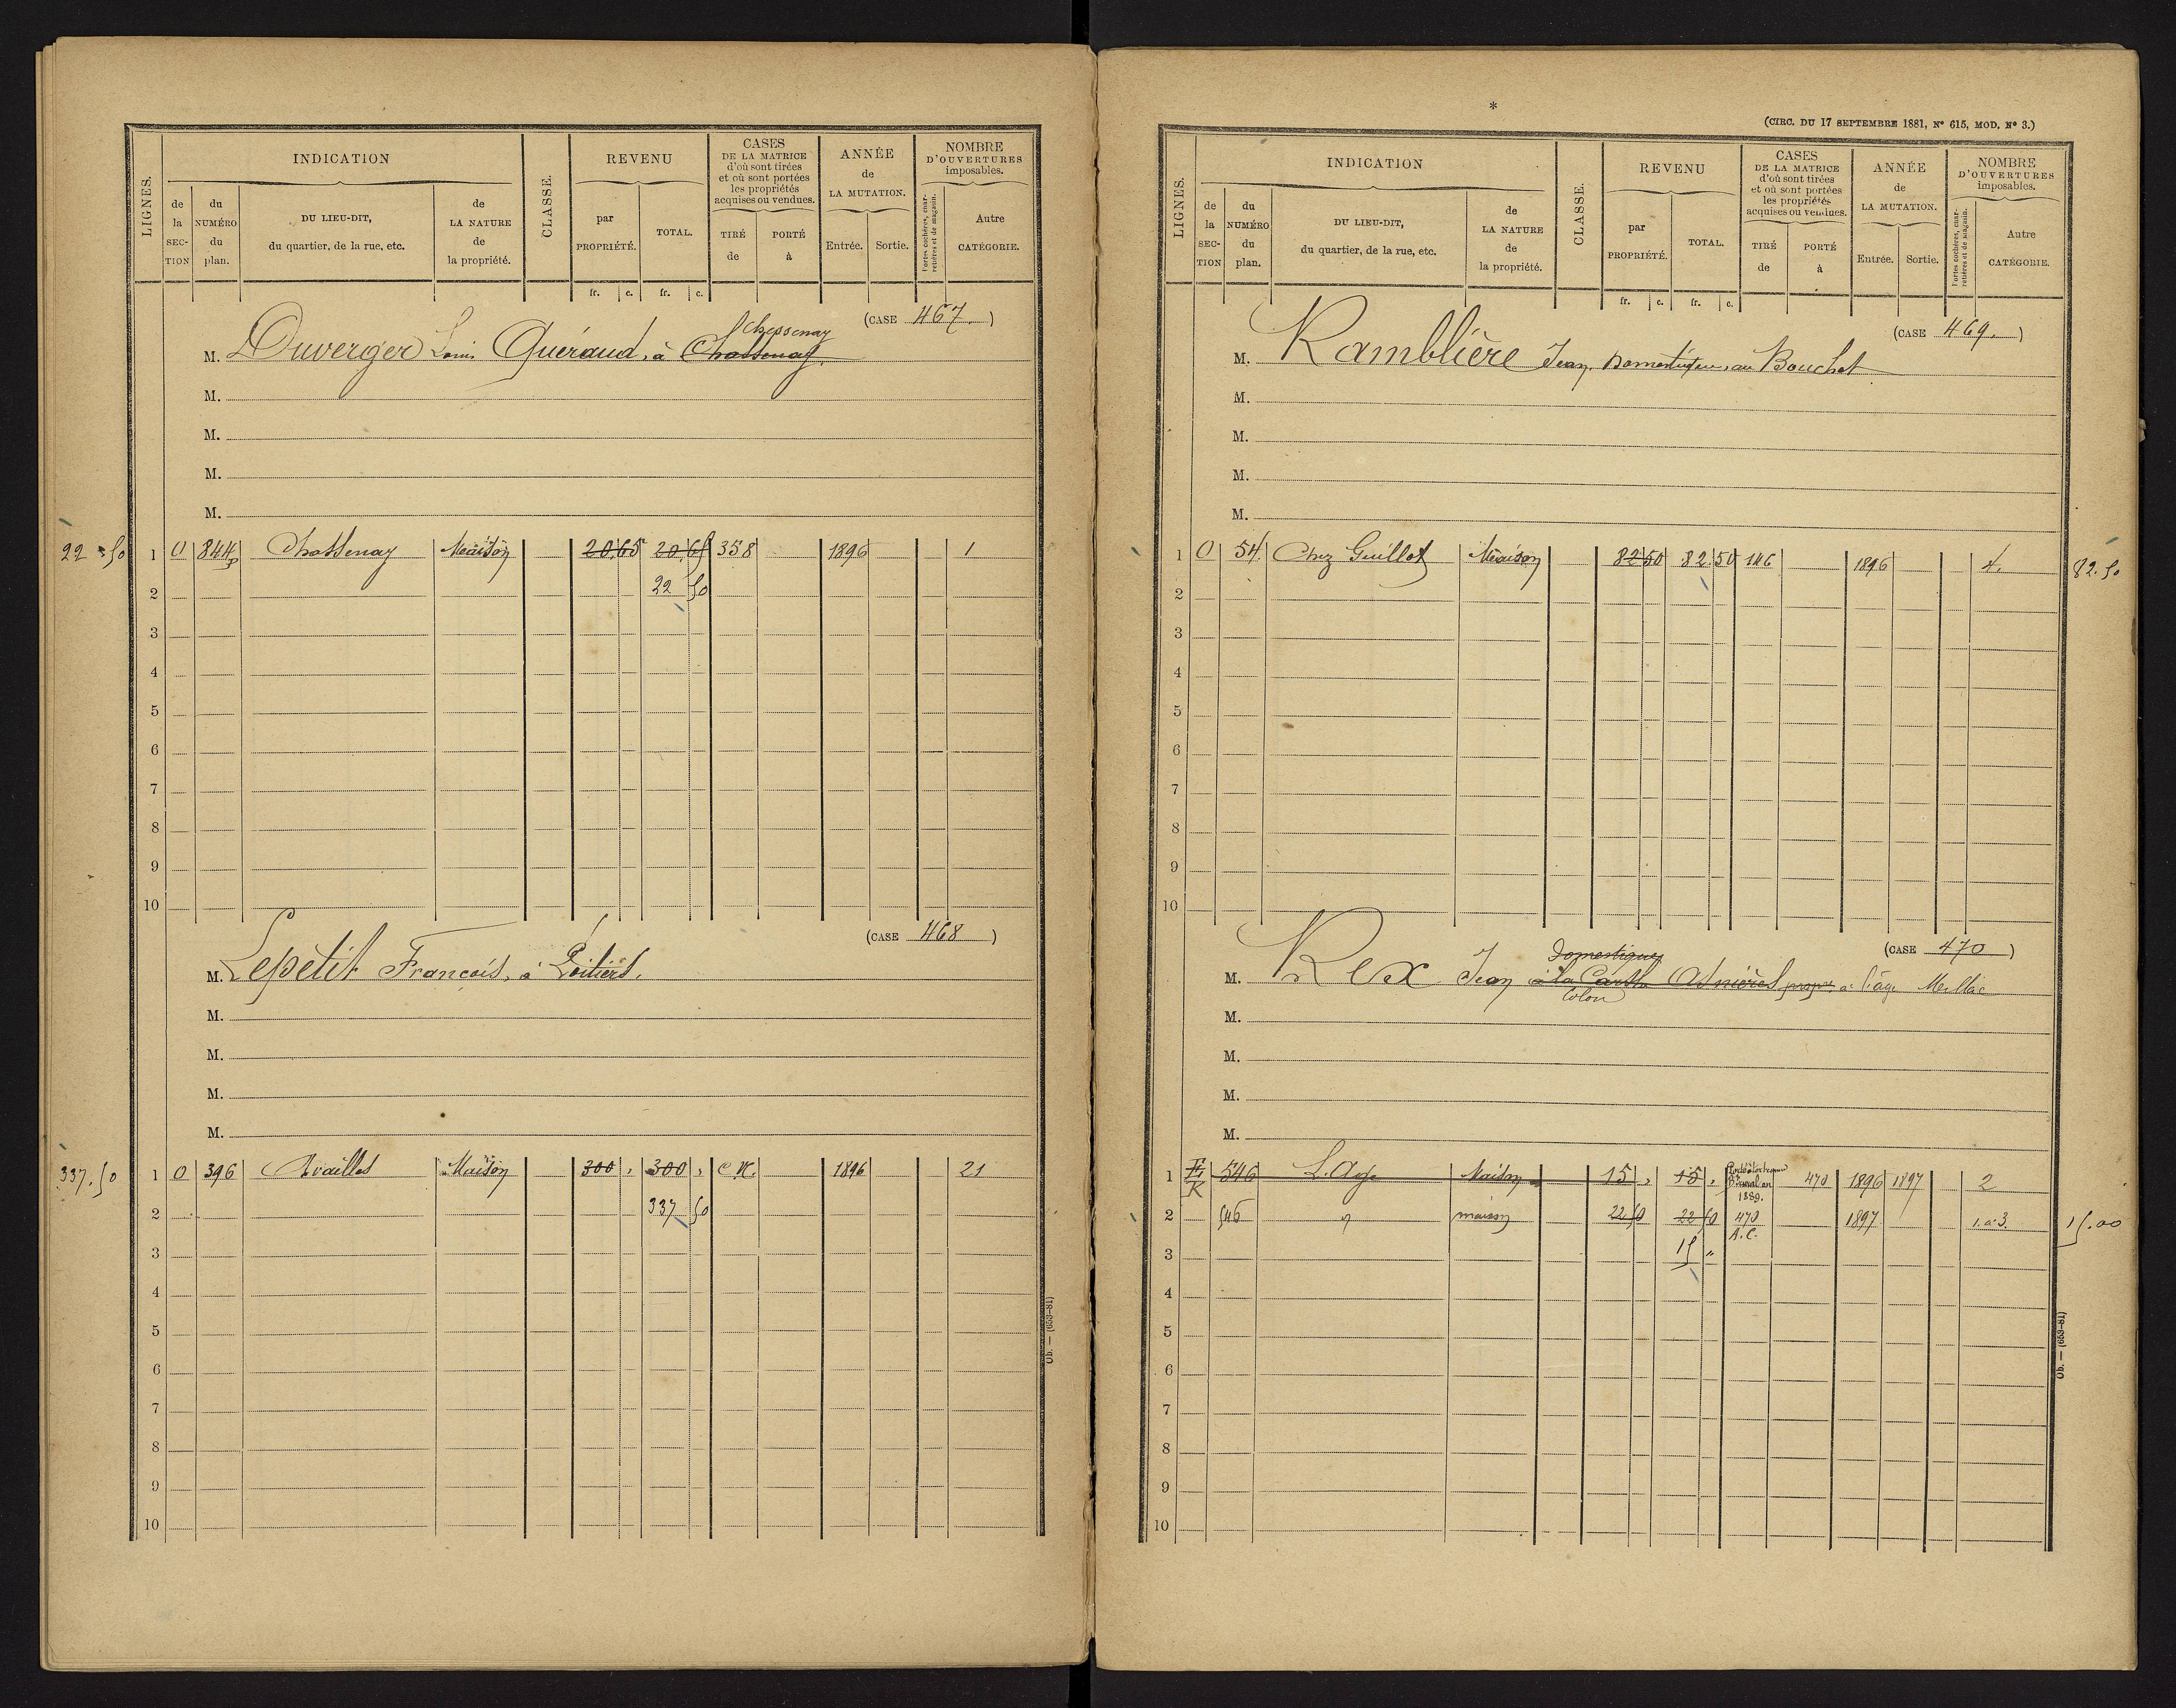 LIGNES.
INDICATION
de la SECTION
du NUMÉRO du plan.
DU LIEU-DIT, du quartier, de la rue, etc.
de LA NATURE de la propriété.
CLASSE.
REVENU
par PROPRIÉTÉ.
TOTAL.
CASES DE LA MATRICE d'où sont tirées et où sont portées les propriétés acquises ou vendues.
TIRÉ de
PORTÉ à
ANNÉE de LA MUTATION.
Entrée.
Sortie.
NOMBRE D'OUVERTURES imposables.
Portes cochères, charretières et de magasin.
Autre CATÉGORIE.
fr. c. fr. c.
(CASE 467.)
Chessenay
M. Duverger Louis Guéraud, à Chassenay.
M.
M.
M.
M.
22 50 1 O 844p Chassenay Maison 20.65 20.65 358 1896 1
2 22 50
3
4
5
6
7
8
9
10
(CASE 468)
M. Lepetit François, à Poitiers.
M.
M.
M.
M.
337.50 1 O 396 Availles Maison 300 " 300 " C.N. 1896 21
2 337 50
3
4
5
6
7
8
9
10
Ob. — (653-81)
*
(CIRC. DU 17 SEPTEMBRE 1881, Nº 615, MOD. Nº 3.)
LIGNES.
INDICATION
de la SECTION
du NUMÉRO du plan.
DU LIEU-DIT, du quartier, de la rue, etc.
de LA NATURE de la propriété.
CLASSE.
REVENU
par PROPRIÉTÉ.
TOTAL.
CASES DE LA MATRICE d'où sont tirées et où sont portées les propriétés acquises ou vendues.
TIRÉ de
PORTÉ à
ANNÉE de LA MUTATION.
Entrée.
Sortie.
NOMBRE D'OUVERTURES imposables.
Portes cochères, charretières et de magasin.
Autre CATÉGORIE.
fr. c. fr. c.
(CASE 469.)
M. Ramblière Jean, Domestique, au Bouchet
M.
M.
M.
M.
1 O 54 Chez Guillot Maison 82 50 82.50 146 1896 4. 82.50
2
3
4
5
6
7
8
9
10
(CASE 470)
Domestique
M. Rex Jean à la Asnières propre à l'âge Meillac
Colon
M.
M.
M.
M.
1 K 546 L'Age Maison 15 " 15 " 1889. 470 1896 1897 2
2 546 " maison 22 50 22 50 470 A.C. 1897 1.à 3. 15.00
3 15 "
4
5
6
7
8
9
10
Ob. — (653-81)